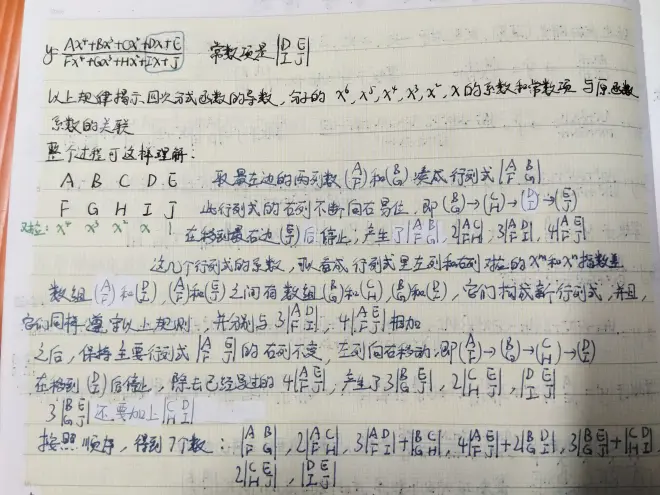 y= Ax⁴+Bx³+Cx²+Dx+E / Fx⁴+Gx³+Hx²+Ix+J 常数项是 |D E; I J|
以上规律揭示四次分式函数的导数，分子的 x⁶, x⁵, x⁴, x³, x², x 的系数和常数项 与原函数
系数的关联
整个过程可这样理解：
A B C D E 取最左边的两列数 (A F) 和 (B G) 凑成行列式 |A B; F G|
F G H I J 此行列式的右列不断向右易位，即 (B G)→(C H)→(D I)→(E J)
对应: x⁴ x³ x² x 1 在移到最右边 (E J) 后停止，产生了 |A B; F G|, 2|A C; F H|, 3|A D; F I|, 4|A E; F J|
这几个行列式的系数，取看成行列式里左列和右列对应的 xᵐ和xⁿ指数差
数组 (A F) 和 (D I), (A F) 和 (E J) 之间有数组 (B G) 和 (C H), (B G) 和 (D I)，它们构成新行列式，并且，
它们同样遵守以上规则，并分别与 3|A D; F I|, 4|A E; F J| 相加
之后，保持主要行列式 |A E; F J| 的右列不变，左列向右移动，即 (A F)→(B G)→(C H)→(D I)
在移到 (D I) 后停止，除去已经易出的 4|A E; F J|，产生了 3|B E; G J|, 2|C E; H J|, |D E; I J|
3|B E; G J| 还要加上 |C D; H I|
按照顺序，得到7个数: |A B; F G|, 2|A C; F H|, 3|A D; F I|+|B C; G H|, 4|A E; F J|+2|B D; G I|, 3|B E; G J|+|C D; H I|,
2|C E; H J|, |D E; I J|